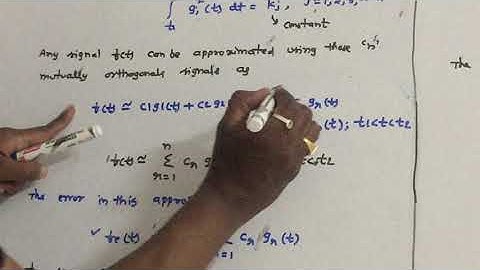 ∫ g_j²(t) dt = k_j, j=1,2,3
t1
constant
Any signal f(t) can be approximated using these 'n'
mutually orthogonals signals as
f(t) ≃ c1g1(t) + c2g2 g_n(t)
(t); t1<t<t2
f(t) ≃ Σ c_r g <t2
n
r=1
The error in this appro
✓ fe(t) c_r g_r(t)
=1
The